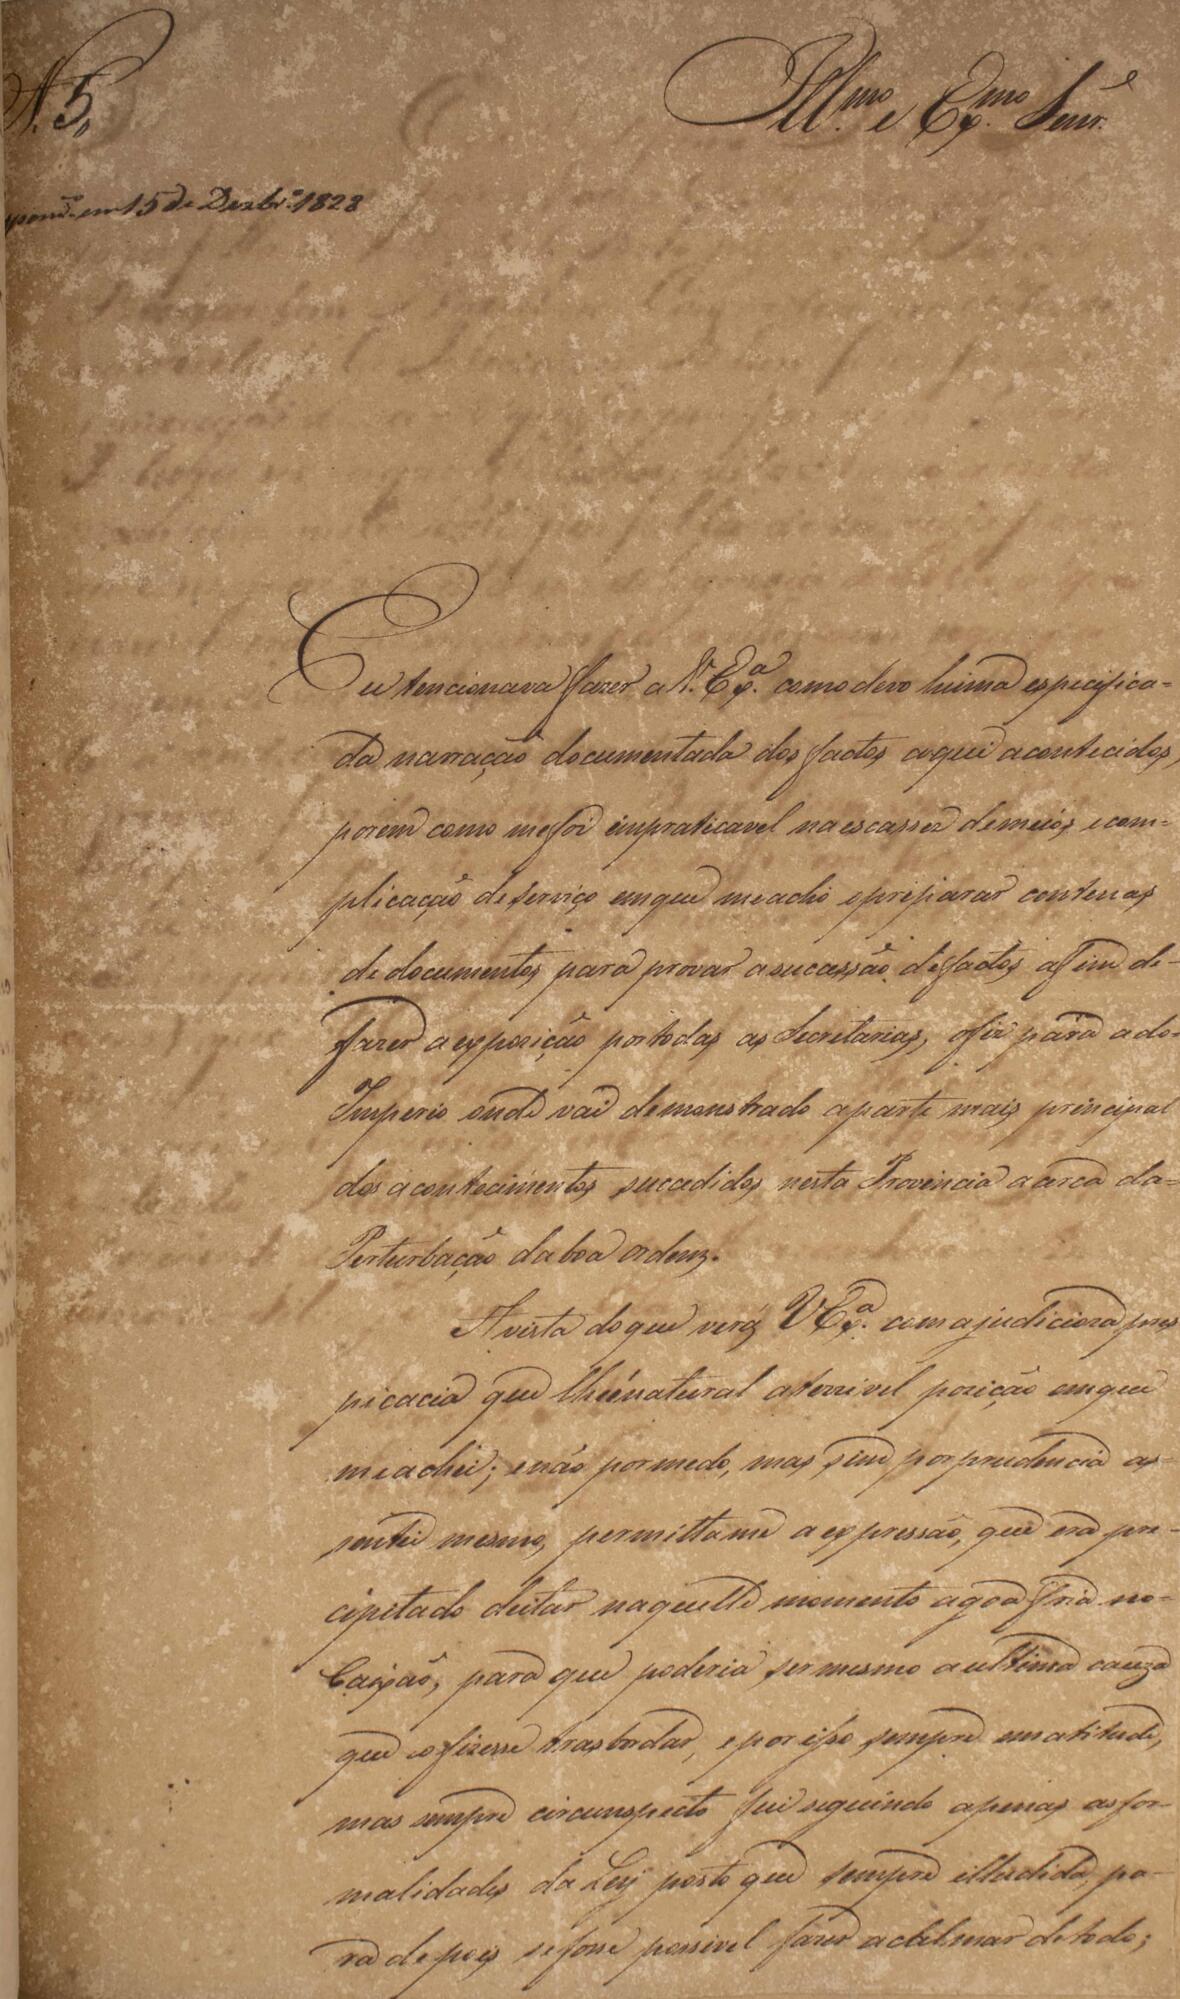 N. 5,,
Ill.mo e Ex.mo Senr.
em 15 de Dezbr.o 1828
Eu tencionava fazer a V. Ex.a como devo huma especifica=
da narração documentada dos factos aqui acontecidos,
porem como me foi impraticavel na escassez de meios e com=
plicação de serviço em que me acho o preparar contenas
de documentos para provar a sucessão de factos afim de=
fazer a expozição por todas as Secretarias, o fiz para a do=
Imperio onde vai demonstrado a parte mais principal
dos acontecimentos sucedidos nesta Provincia acerca da=
Perturbação da boa ordem.
A vista do que verá V Ex.a com a judicioza pres
picacia que lhe é natural a terrivel pozição em que
me achei; e não por medo, mas sim por prudencia as=
sentei mesmo, permitta me a expressão, que era pre=
cipitado deitar naquelle momento agoa fria no=
Caixão, para que poderia ser mesmo a ultima cauza
que o fizesse trasbordar, e por isso sempre em atitude,
mas sempre circunspecto fui seguindo apenas as for
malidades da Ley posto que sempre illudida, pa=
ra depois se fosse possivel fazer acalmar de todo;